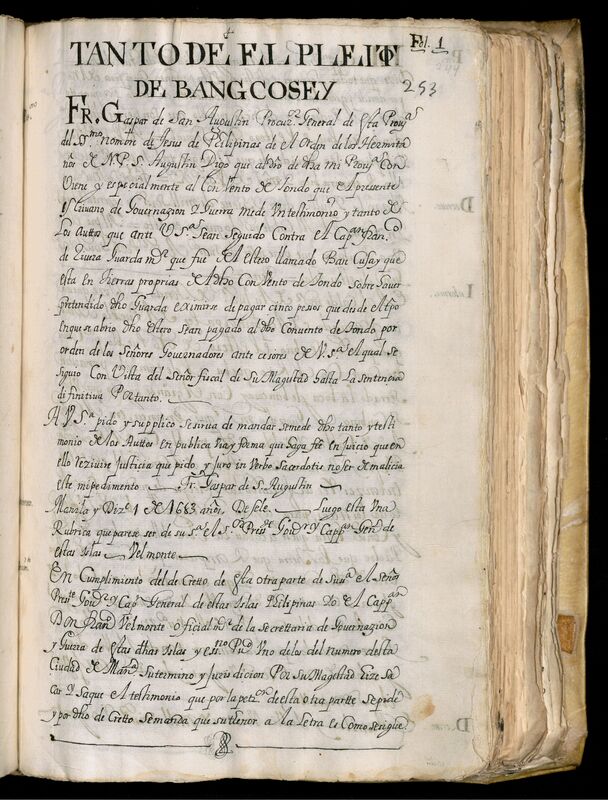 TANTO DE EL PLEITO
Fol. 1
253
DE BANGCOSEY
FR. Gaspar de San Augustin Procur.r General de esta Prov.a
del SS.mo nombre de Jesus de Philipinas de el Orden de los Hermita
ños de N. P. S. Augustin Digo que al dro de dha mi Prov.a Con
viene y especialmente al Convento de Tondo que el presente
escrivano de Governazion y Guerra me de Un testimonio y tanto de
Los Auttos que ante V.S.a sean seguido Contra el Cap.an fran.co
de Rivera Guarda m.r que fue de el estero llamado Ban Cusay que
esta en tierras proprias de el dho Convento de Tondo sobre haver
pretendido dho Guarda eximirse de pagar cinco pesos que desde el tpo
en que se abrio dho estero sean pagado al dho Convento de Tondo por
orden de los señores Governadores ante cesores de V.S.a el qual se
siguio Con Vista del señor fiscal de su Magestad hasta La sentencia
difinitiva Por tanto.
A V.S.a pido y supplico se sirva de mandar se me de dho tanto y testi
monio de los Auttos en publica y forma que haga fee en Juicio que en
ello rezivire Justicia que pido, y Juro in Verbo Sacerdotis no ser de malicia
este mi pedimento — Fr. Gaspar de S. Augustin
Manila y Diz.e 1 de 1683 años. Desele. — Luego esta Una
Rubrica que parese ser de su s.a el S.or Press.te Gov.or y Capp.an Gen.l de
estas Islas — Velmonte
En Cumplimiento del de Cretto de esta otra parte de Su s.a el Señor
Press.te Gov.or y Cap.an General de estas Islas Philipinas Yo el Capp.an
Don fran.co Velmonte official m.r de la Secrettaria de Governazion
y Guerra de estas dhas Islas y es.no Pu.co Uno de los del numero desta
Ciudad de Man.a su termino y Jurisdicion Por su Magestad hize sa
car y saque el testimonio que por la pet.on de esta otra partte se pide
y por dho de Cretto se manda que su tenor a la Letra es Como se sigue